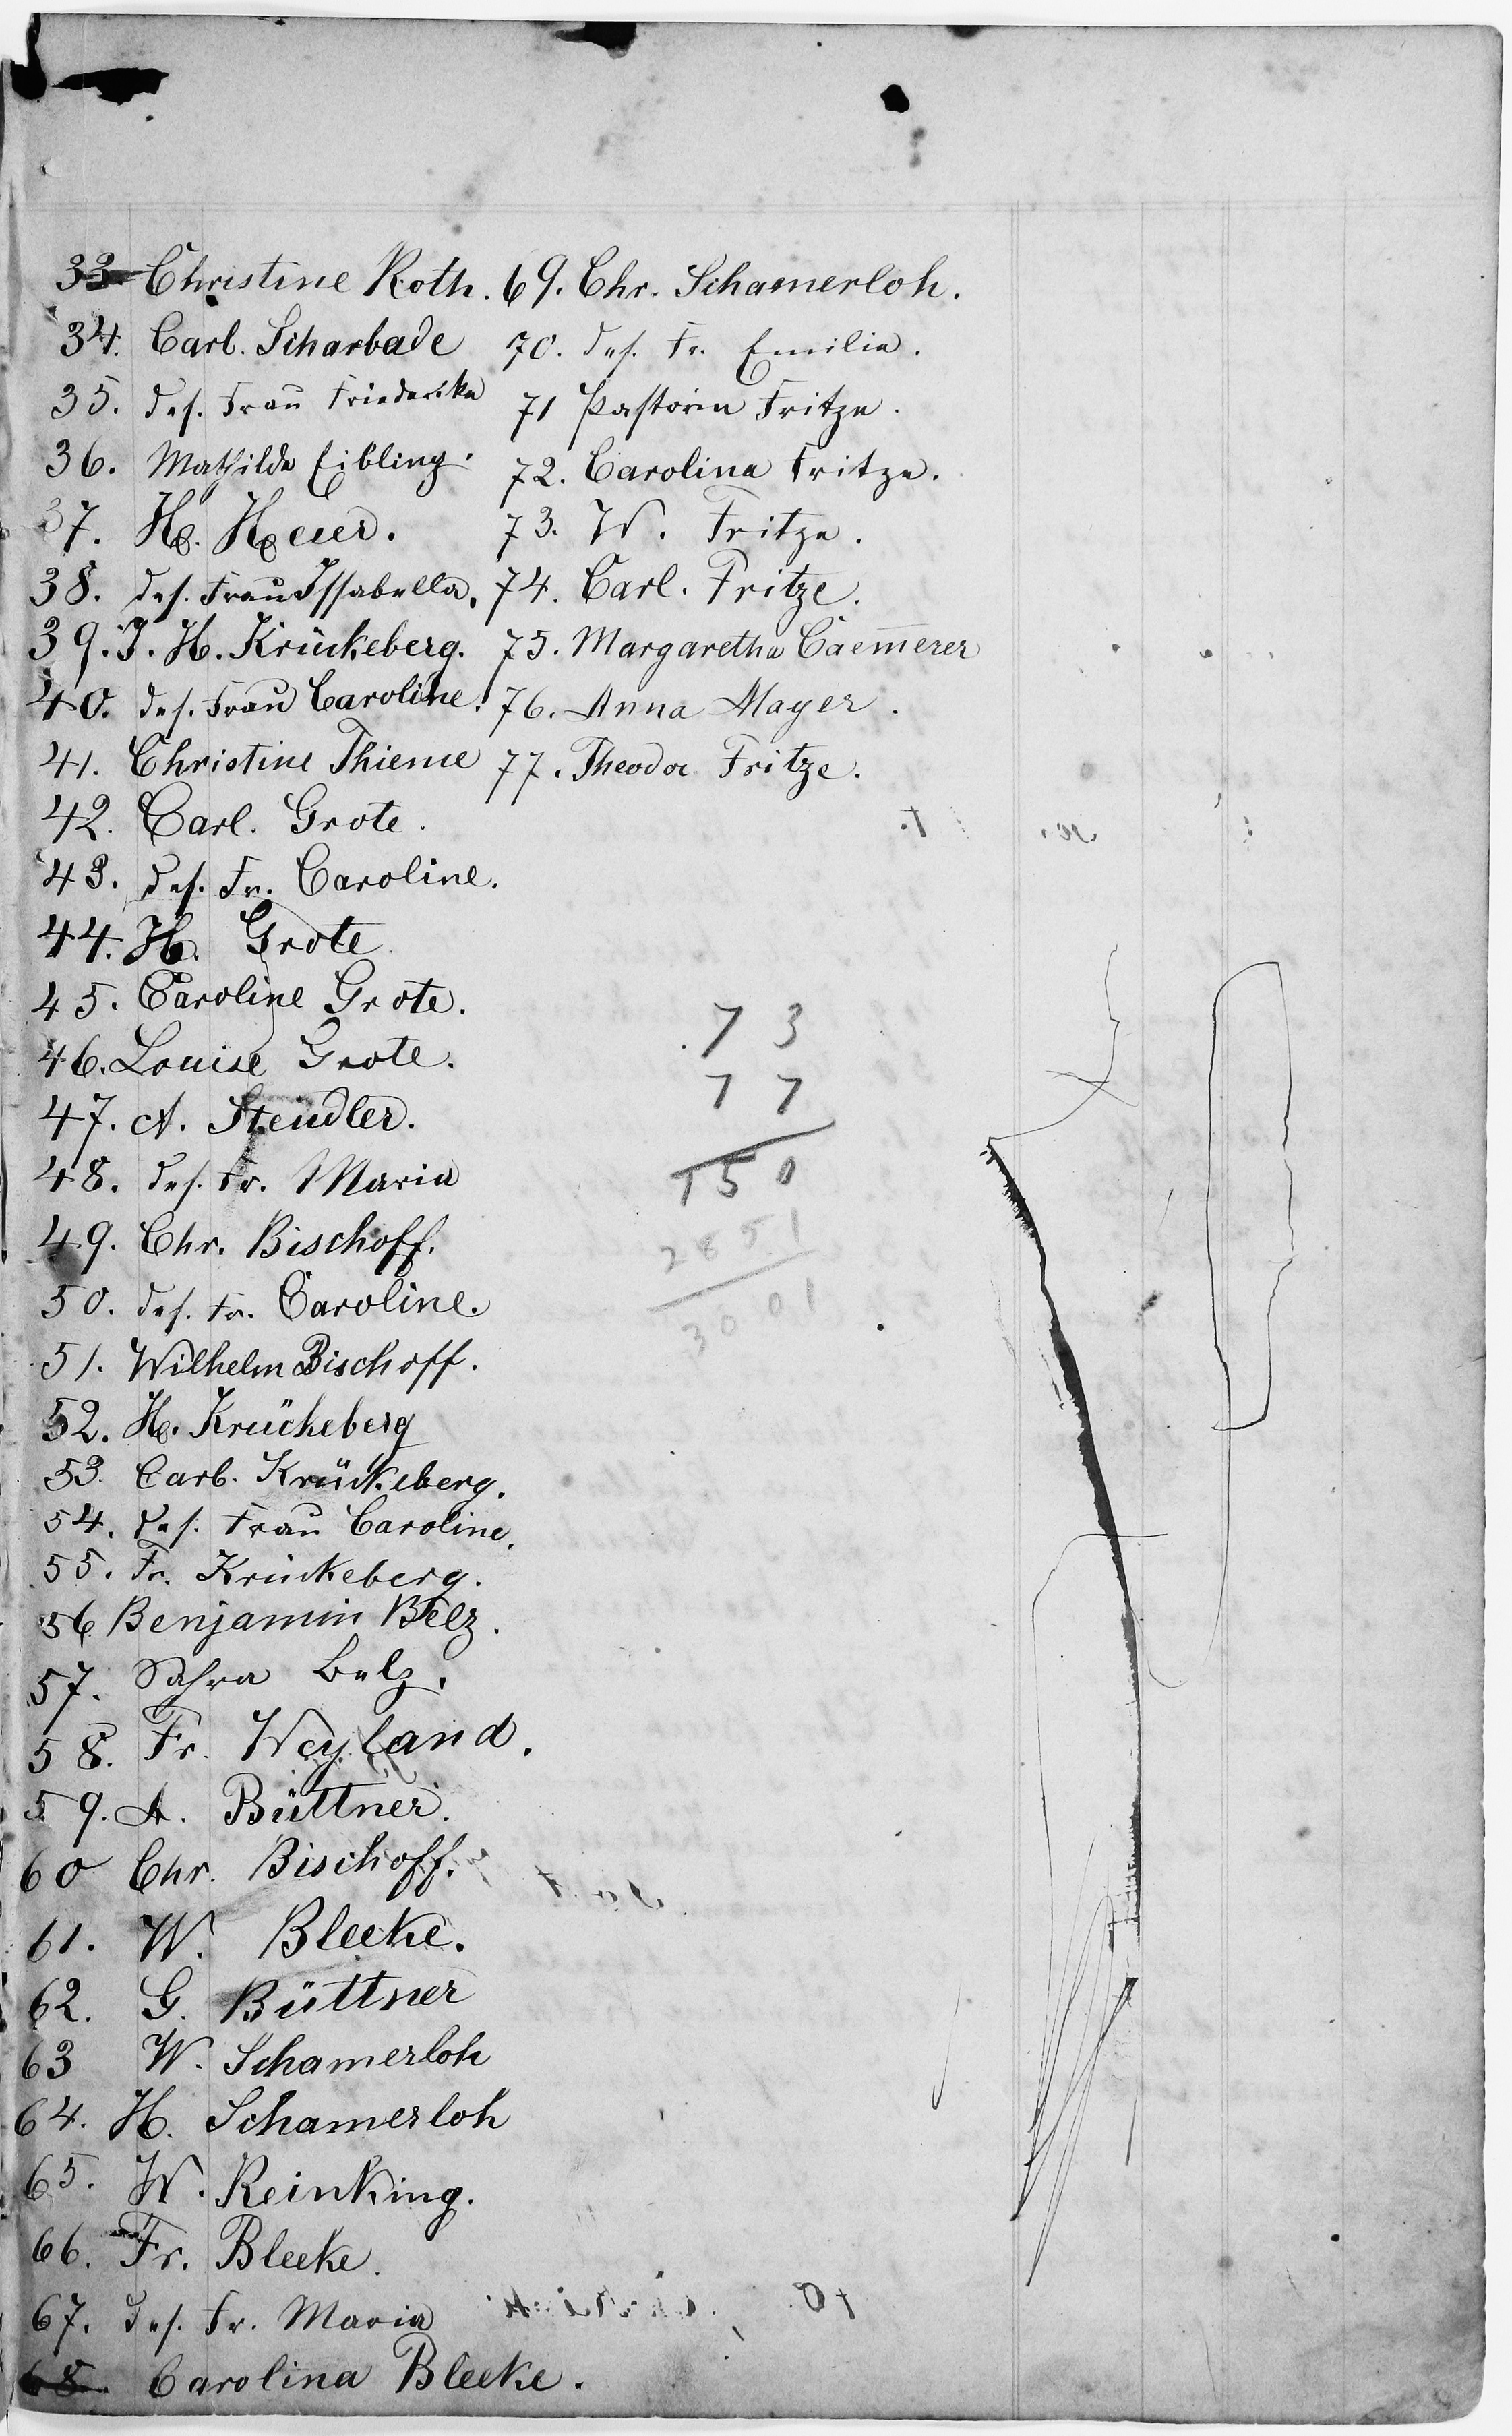 33 Christine Roth.
34. Carl. Scharbade
35. des. Frau Friederike
36. Mathilde Eibling.
37. H. Heuer.
38. des. Frau Issabella.
39. J. H. Krückeberg.
40. des. Frau Caroline.
41. Christine Thieme
42. Carl. Grote.
43. des. Fr. Caroline.
44. H. Grote
45. Caroline Grote.
46. Louise Grote.
47. A. Steudler.
48. des. Fr. Maria
49. Chr. Bischoff.
50. des. Fr. Caroline.
51. Wilhelm Bischoff.
52. H. Krückeberg
53. Carl. Krückeberg.
54. des. Frau Caroline.
55. Fr. Krückeberg.
56 Benjamin Belz.
57. Sahra Belz.
58. Fr. Weyland.
59. A. Büttner.
60 Chr. Bischoff.
61. W. Bleeke.
62. G. Büttner
63 W. Schamerloh
64. H. Schamerloh
65. W. Reinking.
66. Fr. Bleeke.
67. des. Fr. Maria
68 Carolina Bleeke.
69. Chr. Schamerloh.
70. des. Fr. Emilie.
71 Pastorin Fritze.
72. Carolina Fritze.
73. W. Fritze.
74. Carl. Fritze.
75. Margaretha Caem̅erer
76. Anna Mayer.
77. Theodor Fritze.
73
77
150
2851
3001